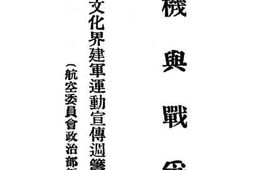 機與戰
文化界建軍運動宣傳週籌
(航空委員會政治部